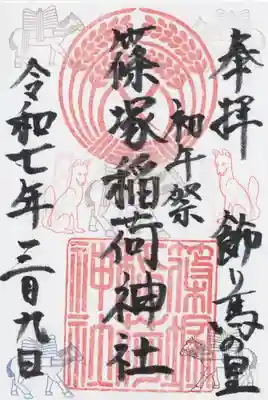 奉拝
飾り馬の里
初午祭
篠塚稲荷神社
令和七年
三月九日
篠塚
稲荷
神社